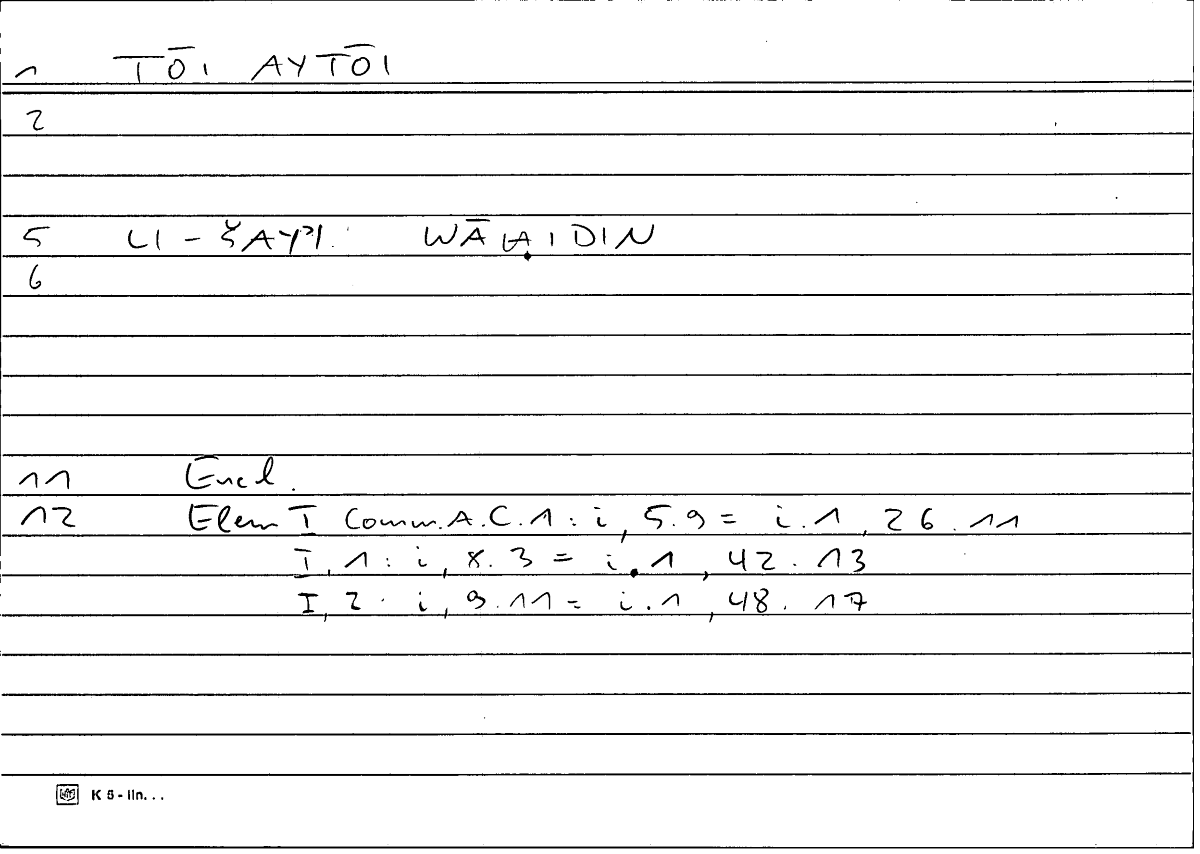 1 TŌI AYTŌI
2
5 LI-ŠAYʾI WĀḤIDIN
6
11 Eucl.
12 Elem I Comm.A.C.1: i, 5.9 = i.1, 26.11
I, 1: i, 8.3 = i.1, 42.13
I, 2: i, 9.11 = i.1, 48.17
K 5 - lin...